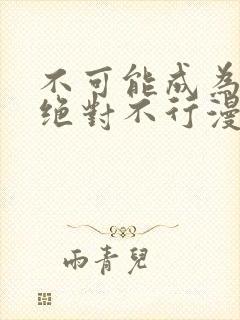 不可能成為
絕對不行漫
雨青兒